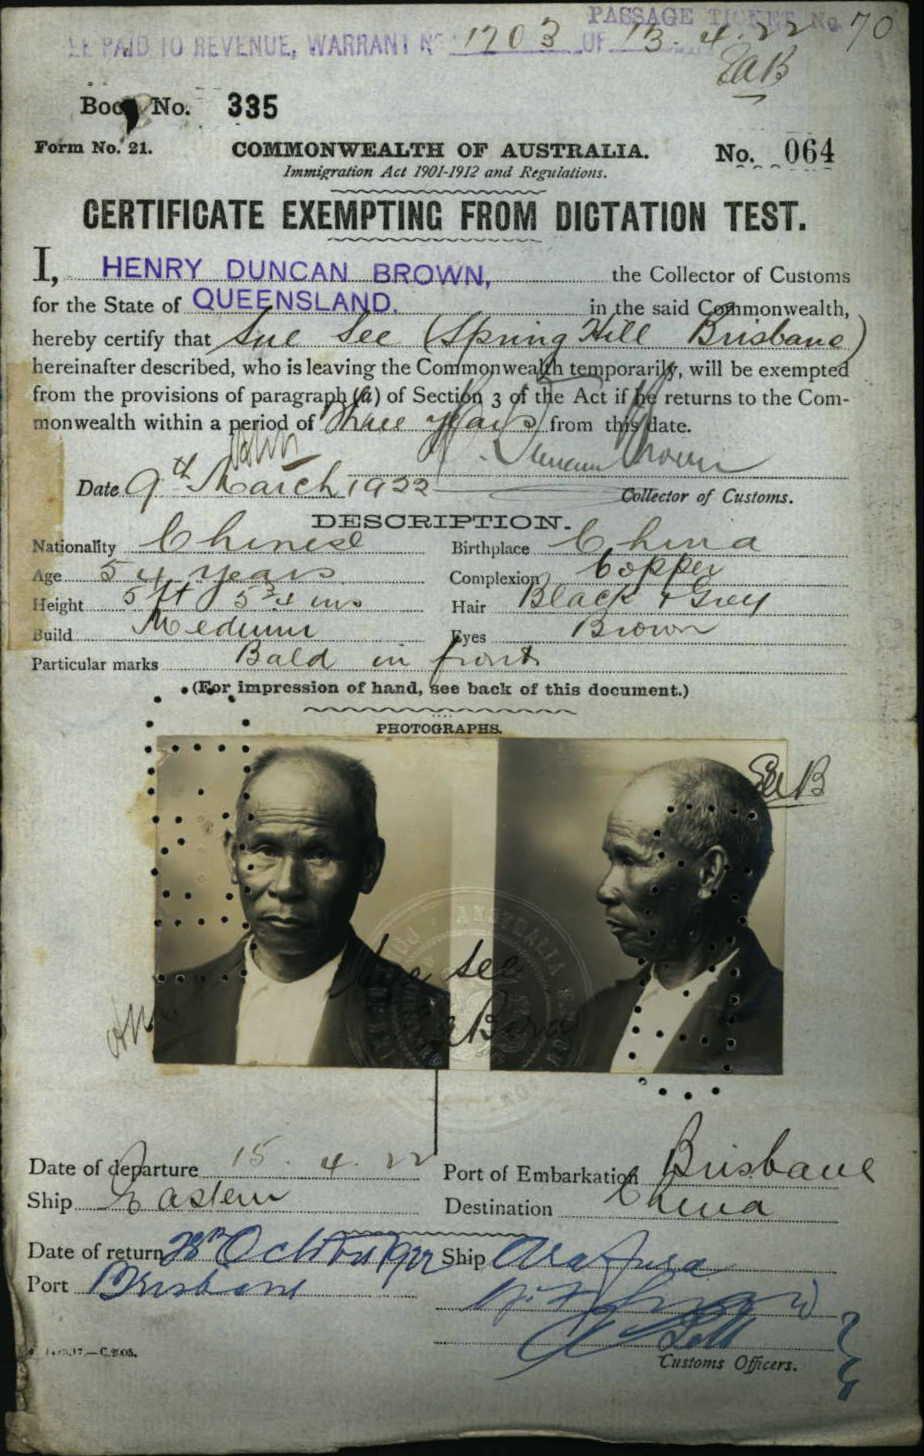 PASSAGE TICKET No 70
PAID TO REVENUE, WARRANT No 1703 OF 13.4.22
EAB
Book No. 335
Form No. 21. COMMONWEALTH OF AUSTRALIA. No. 064
Immigration Act 1901-1912 and Regulations.
CERTIFICATE EXEMPTING FROM DICTATION TEST.
I, HENRY DUNCAN BROWN, the Collector of Customs
for the State of QUEENSLAND. in the said Commonwealth,
hereby certify that Sue See (Spring Hill Brisbane)
hereinafter described, who is leaving the Commonwealth temporarily, will be exempted
from the provisions of paragraph (a) of Section 3 of the Act if he returns to the Com-
monwealth within a period of three years from this date.
H. Duncan Brown
Date 9th March 1922 Collector of Customs.
DESCRIPTION.
Nationality Chinese Birthplace China
Age 54 years Complexion Copper
Height 5 ft 5¾ ins Hair Black & Grey
Build Medium Eyes Brown
Particular marks Bald in front
(For impression of hand, see back of this document.)
PHOTOGRAPHS.
EAB
Sue See
Date of departure 15.4.22 Port of Embarkation Brisbane
Ship Eastern Destination China
Date of return 28th October 1922 Ship Arafura
Port Brisbane
Customs Officers.
C.2105.